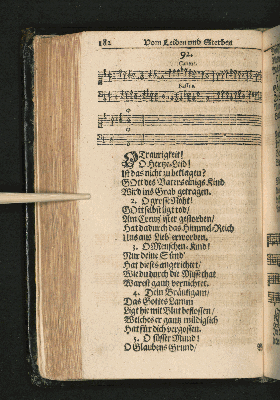 182 Vom Leiden und Sterben
92.
Cantus.
Bassus.
O Traurigkeit!
O Hertze-Leid!
Ist das nicht zu beklagen?
GOtt des Vaters einigs Kind
Wird ins Grab getragen.
2. O grosse Noht!
GOtt selbst ligt tod/
Am Creutz ist er gestorben/
Hat dadurch das Himmel-Reich
Uns aus Lieb erworben.
3. O Menschen-Kind!
Nur deine Sünd'
Hat dieses angerichtet/
Wie du durch die Missethat
Warest gantz vernichtet.
4. Dein Bräutigam/
Das Gottes Lamm
Ligt hie mit Blut beflossen/
Welches er gantz mildiglich
Hat für dich vergossen.
5. O süsser Mund!
O Glaubens Grund/